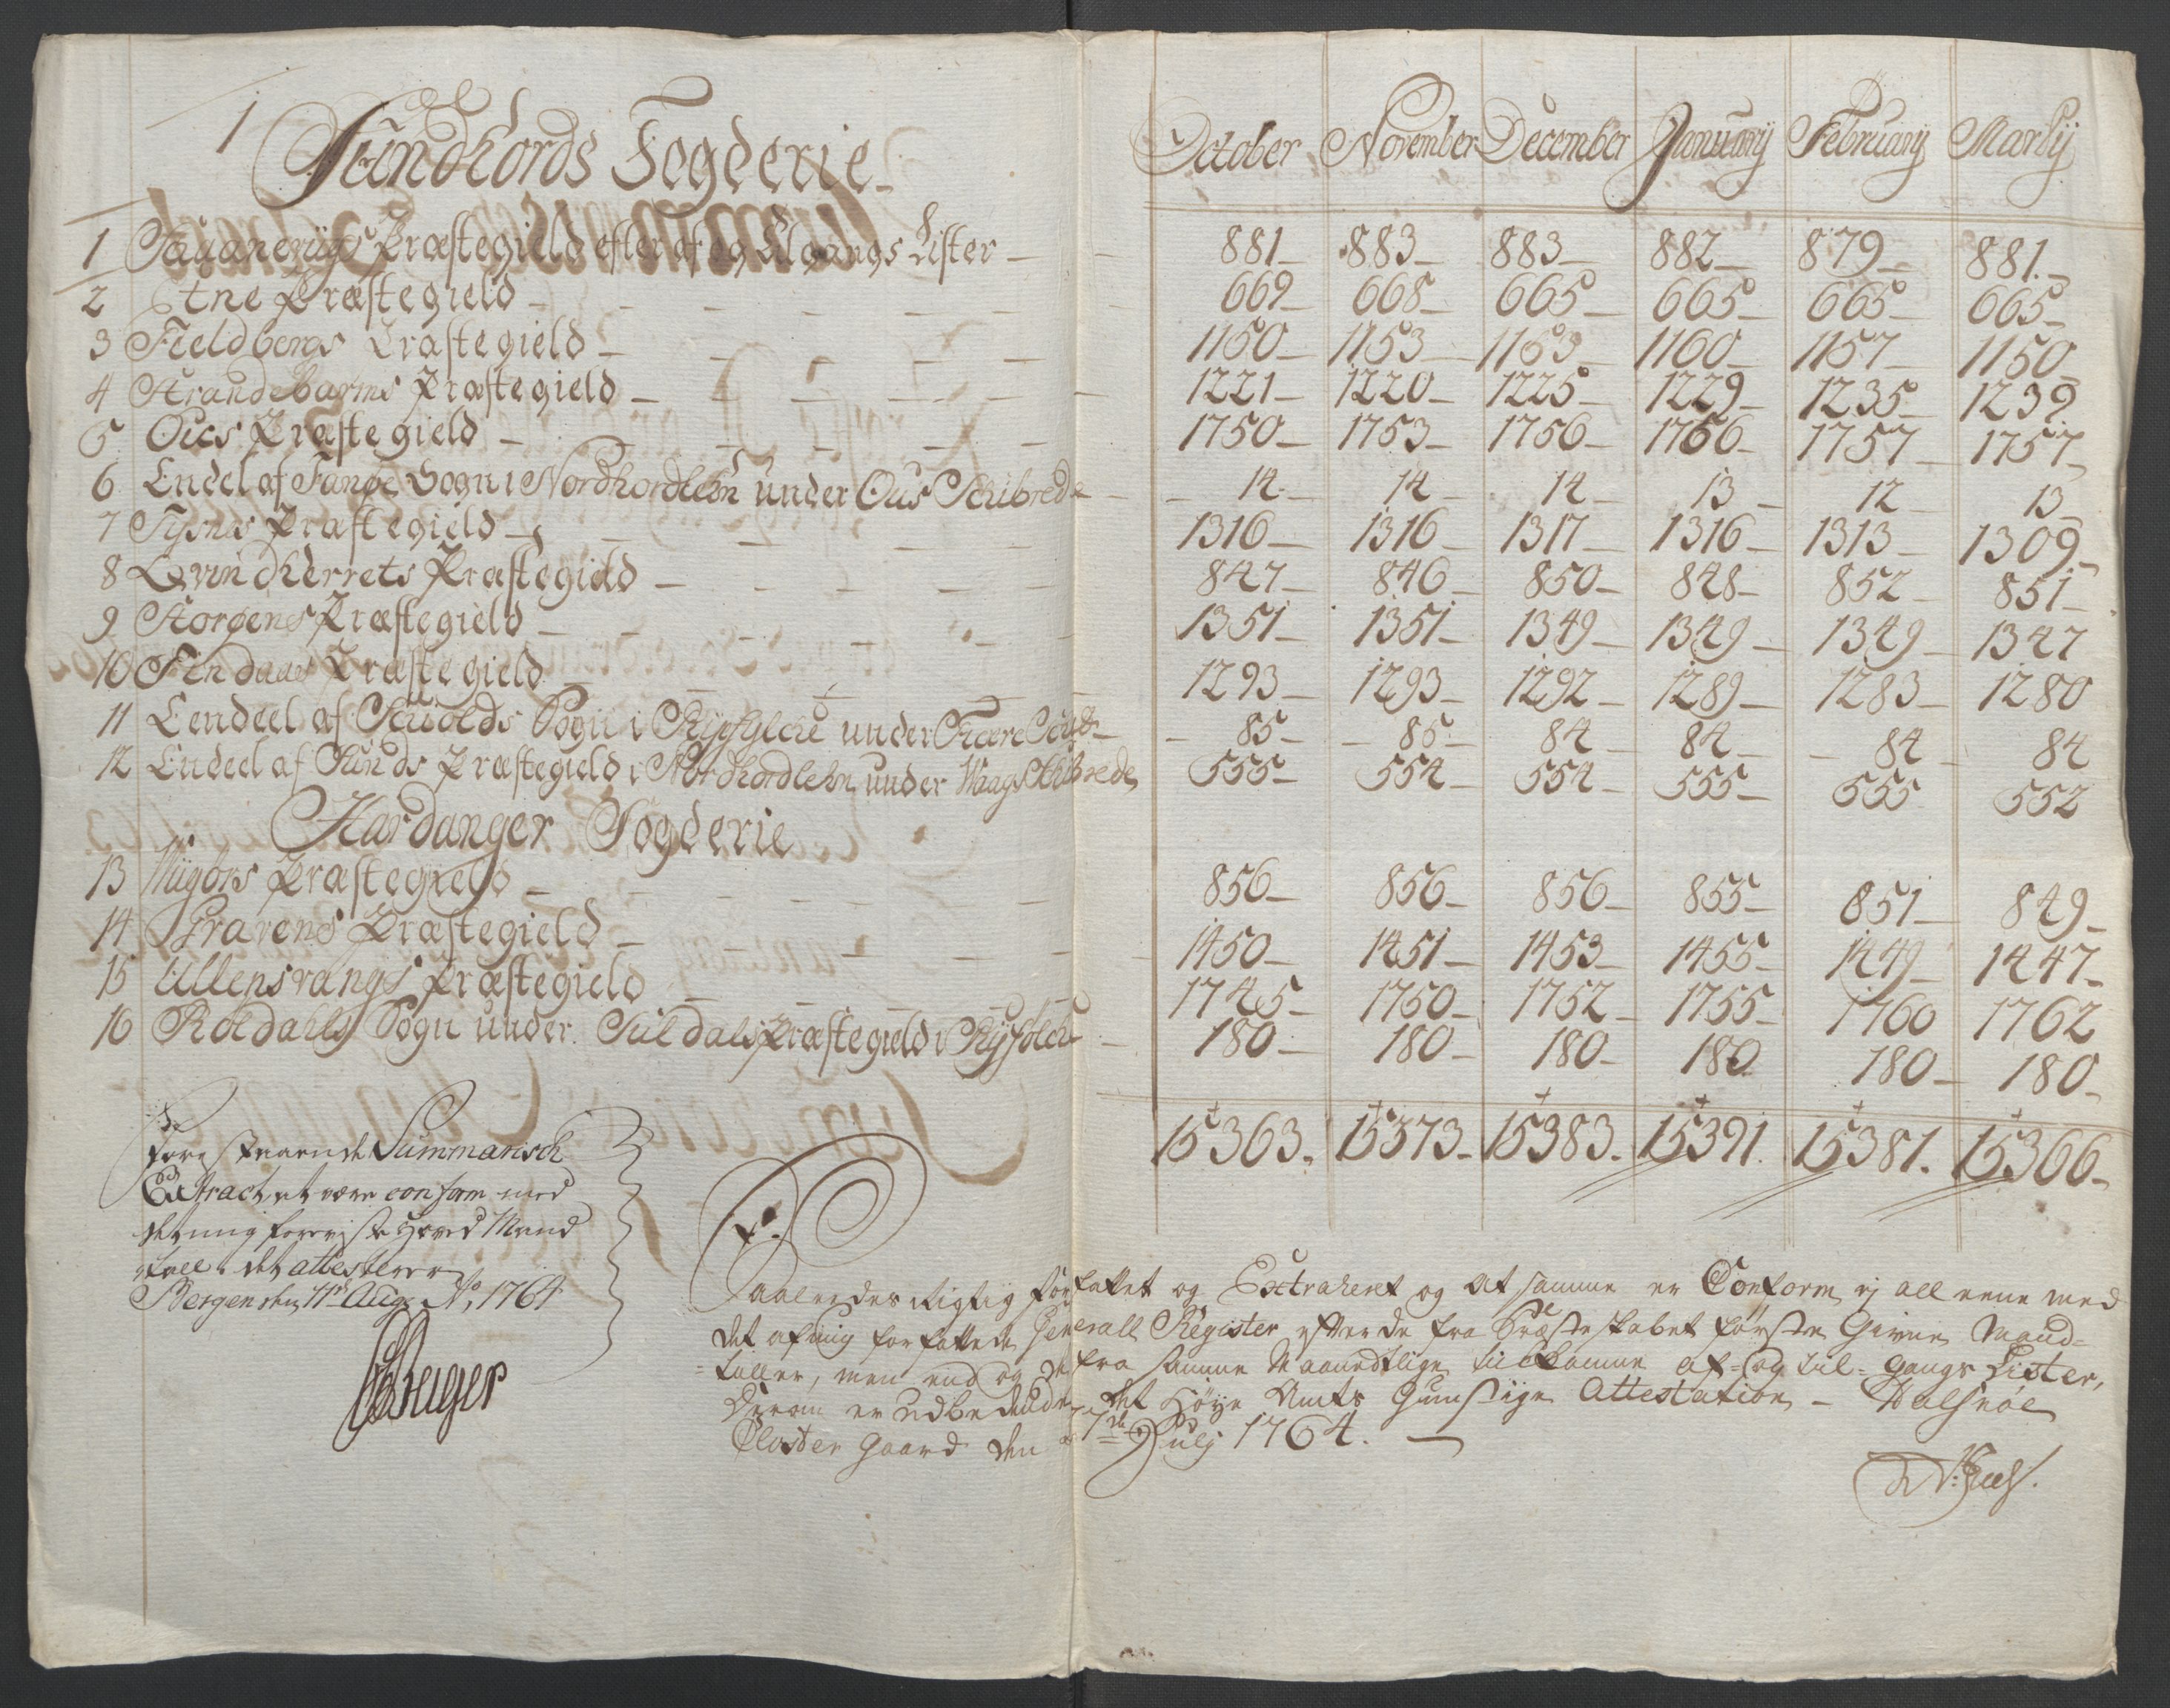 1
Sundhords Fogderie
October November December January February Martij
1 Saguanevigs Præstegield efter af og tilgangs Lister — 881 — 883 — 883 — 882 — 879 — 881 —
2 Etne Præstegield — 669 — 668 — 665 — 665 — 665 — 665 —
3 Fieldbergs Præstegield — 1150 — 1153 — 1153 — 1160 — 1157 — 1150
4 Strandebarms Præstegield — 1221 — 1220 — 1225 — 1229 — 1235 — 1239
5 Ous Præstegield — 1750 — 1753 — 1756 — 1756 — 1757 — 1757 —
6 Endel af Fanøe Sogn i Nordhordlehn under Ous Schibrede — 14 — 14 — 14 — 13 — 12 — 13
7 Tysnes Præstegield — 1316 — 1316 — 1317 — 1316 — 1313 — 1309 —
8 Qvindherrets Præstegield — 847 — 846 — 850 — 848 — 852 — 851 —
9 Storøens Præstegield — 1351 — 1351 — 1349 — 1349 — 1349 — 1347
10 Findaaes Præstegield — 1293 — 1293 — 1292 — 1289 — 1283 — 1280
11 Eendeel af Schiolds Sogn i Ryefylche under Fiære Schib — 85 — 85 — 84 — 84 — 84 — 84
12 Endeel af Sunds Præstegield i Nordhordlehn under Waags Schibrede 555 — 554 — 554 — 555 — 555 552
Hardanger Fogderie
13 Wigørs Præstegield — 856 — 856 — 856 — 855 — 851 — 849 —
14 Gravens Præstegield — 1450 — 1451 — 1453 — 1455 — 1449 — 1447 —
15 Ullensvangs Præstegield 1745 — 1750 — 1752 — 1755 — 1760 1762
16 Roldahls Sogn under Suldals Præstegield i Ryfylche — 180 — 180 — 180 — 180 180 — 180 —
15363. 15373 — 15383. 15391. 15381. 15366 —
Forestaaende Summarisch
Extract at være conform med
det mig foreviste Hoved Mand
tall. det attesterer
Bergen den 11te Aug: Ao 1764
Saaledes rigtig forfattet og Extraheret og at samme er Conform ej alleene med
det af mig forfattede Generall Register efter de fra Præsteskabet første Givne Mand-
taller, men end og de fra samme Maanedtlige indkomne af- og til-gangs Lister,
Derom er udbedende det Høye Amts Gunstige Attestation — Halsnøe
Closter Gaard den 7de Julij 1764. —